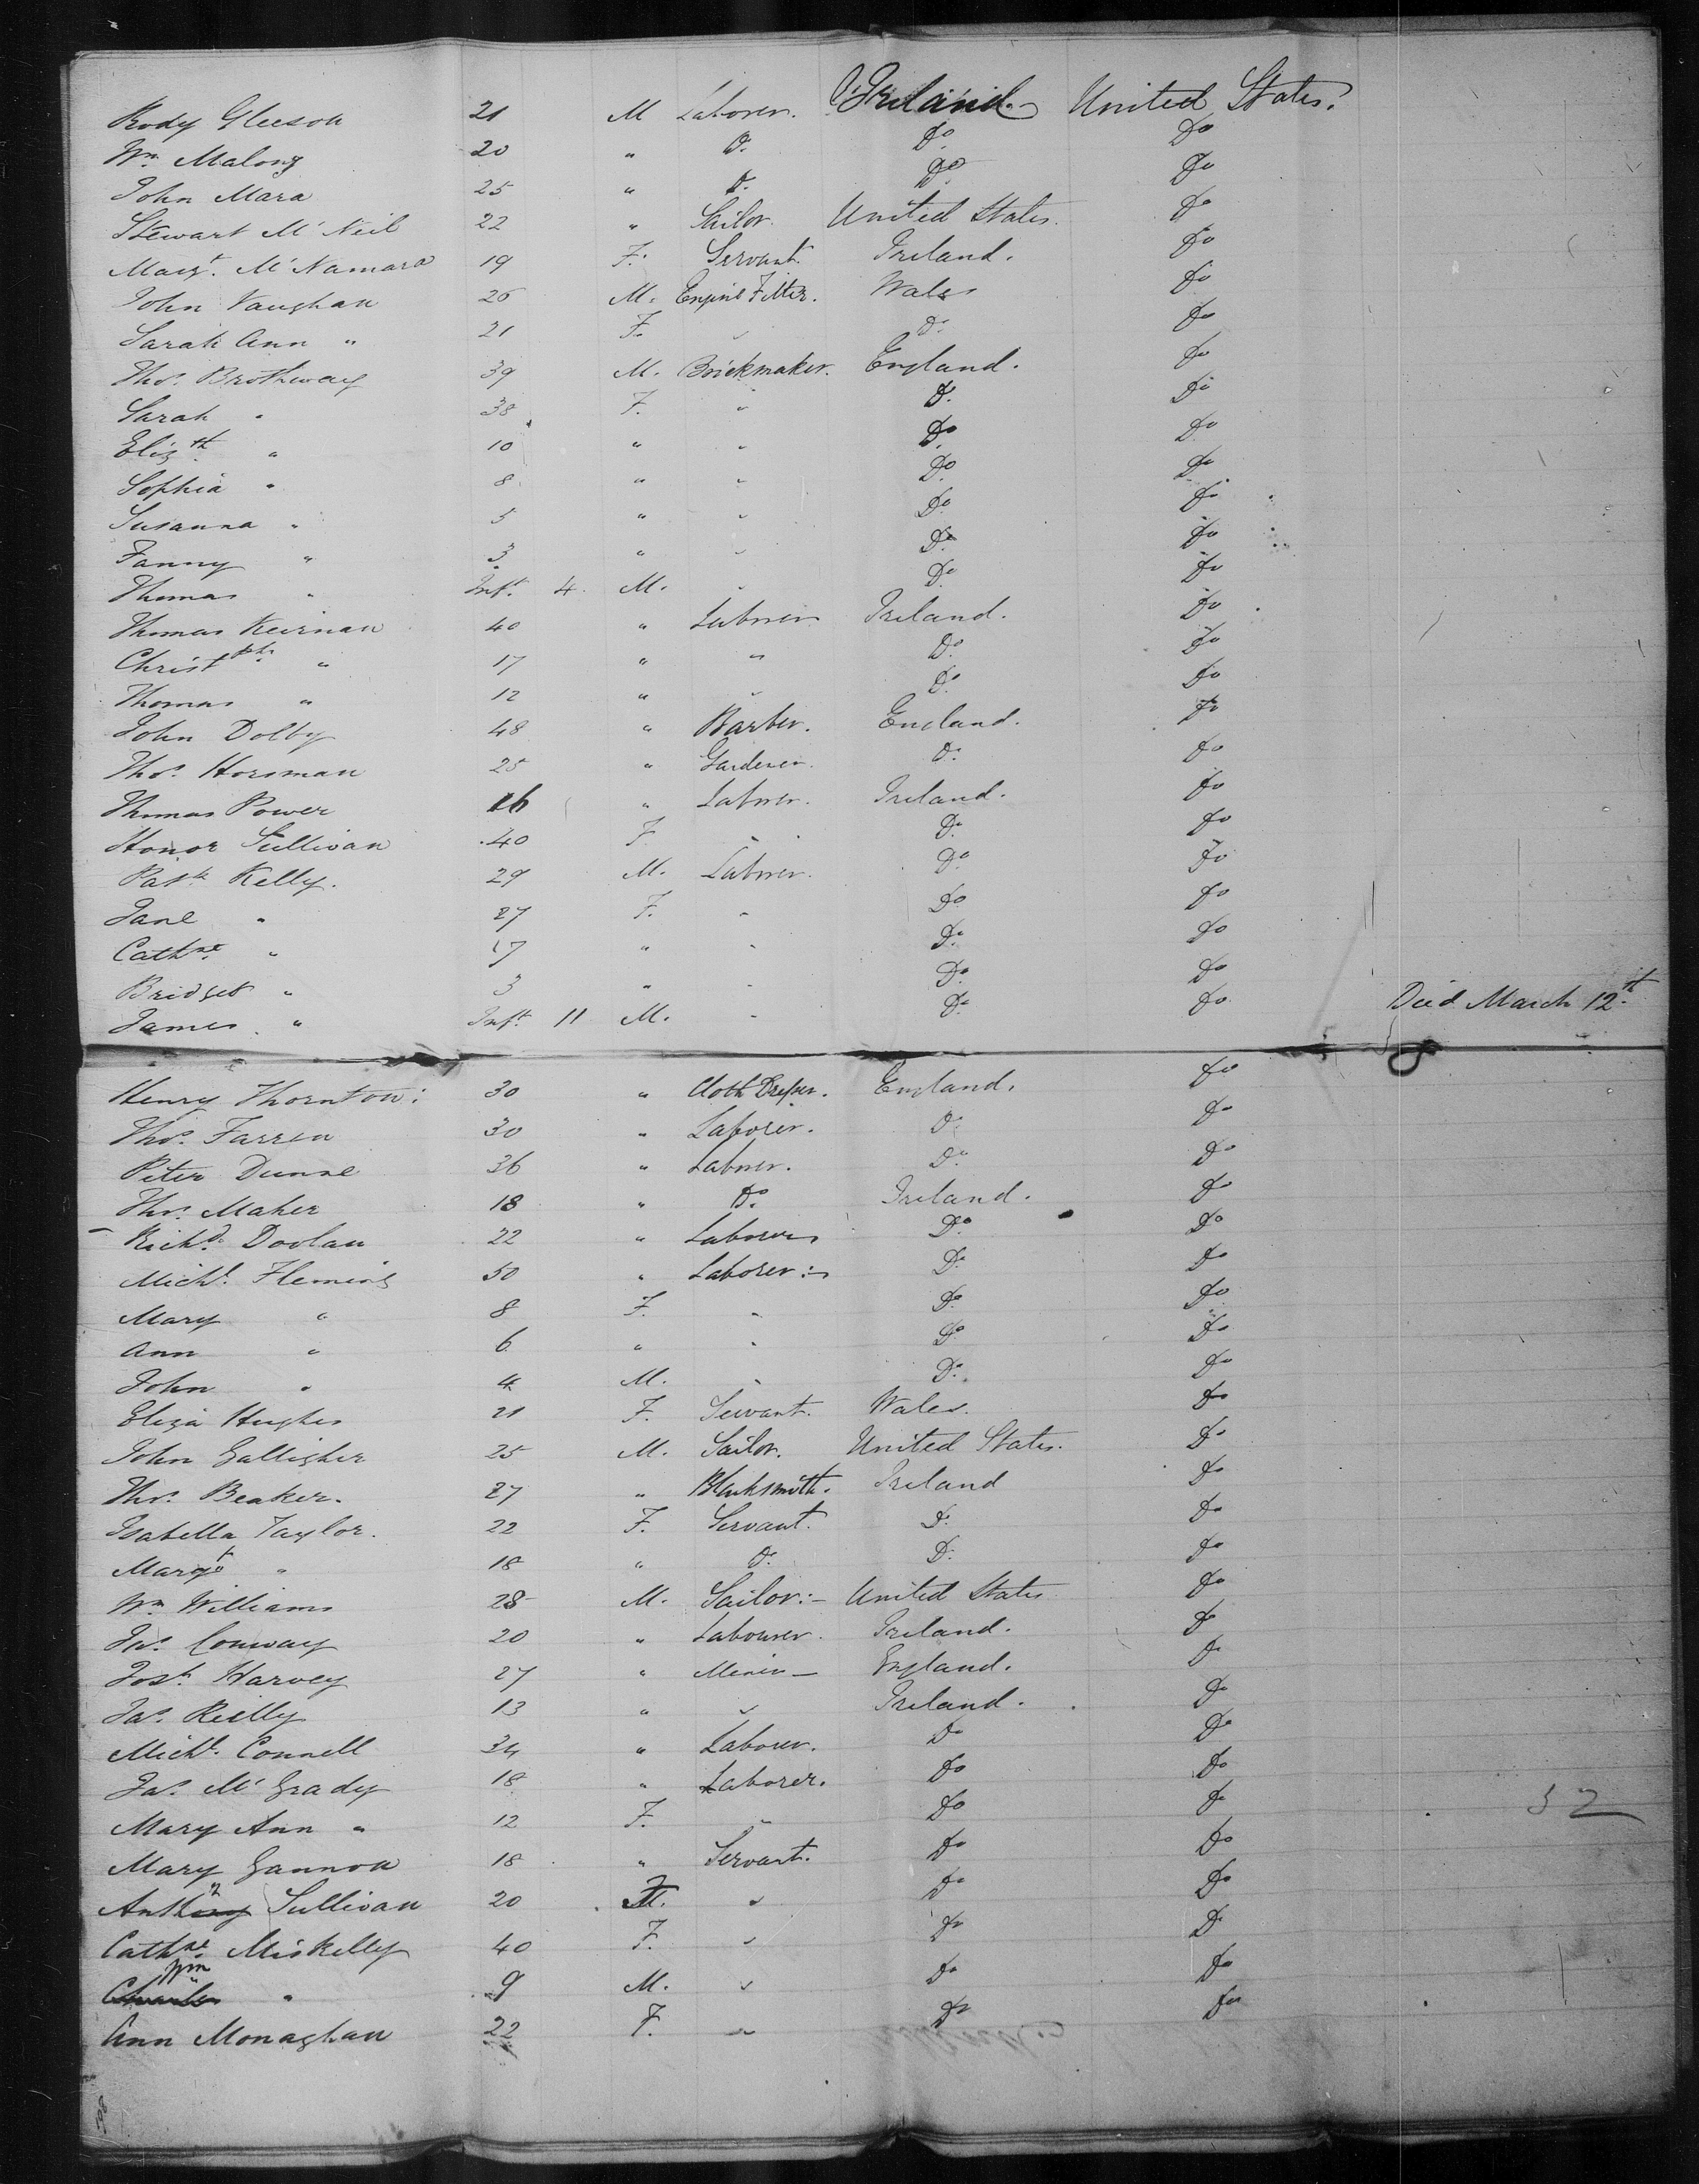 Rody Gleeson 21 M Laborer. Ireland. United States.
Wm. Malony 20 " Do. Do. Do
John Mara 25 " Do. Do. Do
Stewart Mc Neil 22 " Sailor. United States. Do
Margt. Mc Namara 19 F. Servant. Ireland. Do
John Vaughan 26 M. Engine Fitter. Wales Do
Sarah Ann " 21 F. " Do. Do
Thos. Brothway 39 M. Brickmaker. England. Do
Sarah " 38 F. " Do. Do
Elizth. " 10 " " Do. Do
Sophia " 8 " " Do. Do
Susanna " 5 " " Do. Do
Fanny " 3 " " Do. Do
Thomas " Inft. 4 M. " Do. Do
Thomas Keirnan 40 " Laborer Ireland. Do
Christphr. " 17 " " Do. Do
Thomas " 12 " " Do. Do
John Dolby 48 " Barber. England. Do
Thos. Horsman 25 " Gardener. Do. Do
Thomas Power 16 " Laborer. Ireland. Do
Honor Sullivan 40 F " Do. Do
Patk. Kelly. 29 M. Laborer. Do. Do
Jane " 27 F. " Do. Do
Cathne. " " " Do. Do
Bridget " 3 " " Do. Do
James " Inft. 11 M. " Do. Do Died March 12th
Henry Thornton: 30 " Cloth Dresser. England. Do
Thos. Farren 30 " Laborer. Do. Do
Peter Dunne 36 " Laborer. Do. Do
Thos. Maher 18 " Do. Ireland. Do
Richd. Doolan 22 " Laborer Do. Do
Michl. Fleming 50 " Laborer:- Do. Do
Mary " 8 F. " Do. Do
Ann " 6 " " Do. Do
John " 4 M. " Do. Do
Eliza Hughes 21 F. Servant. Wales. Do
John Galligher 25 M. Sailor. United States. Do
Thos. Beaker. 27 " Blacksmith. Ireland Do
Isabella Taylor. 22 F. Servant. Do. Do
Margt " 18 " Do. Do. Do
Wm. Williams 28 M. Sailor:- United States Do
Jas. Conway 20 " Labourer. Ireland. Do
Josh. Harvey 27 " Miner - England. Do
Jas. Reilly 13 " " Ireland. Do
Michl. Connell 34 " Laborer. Do Do
Jas. Mc Grady 18 " Laborer. Do Do
Mary Ann " 12 F. " Do Do 52
Mary Gannon 18 " Servant. Do Do
Sullivan 20 " Do Do
Cathne. Miskelly 40 F. " Do Do
Wm
Charles " 9 M. " Do Do
Ann Monaghan 22 F. " Do Do